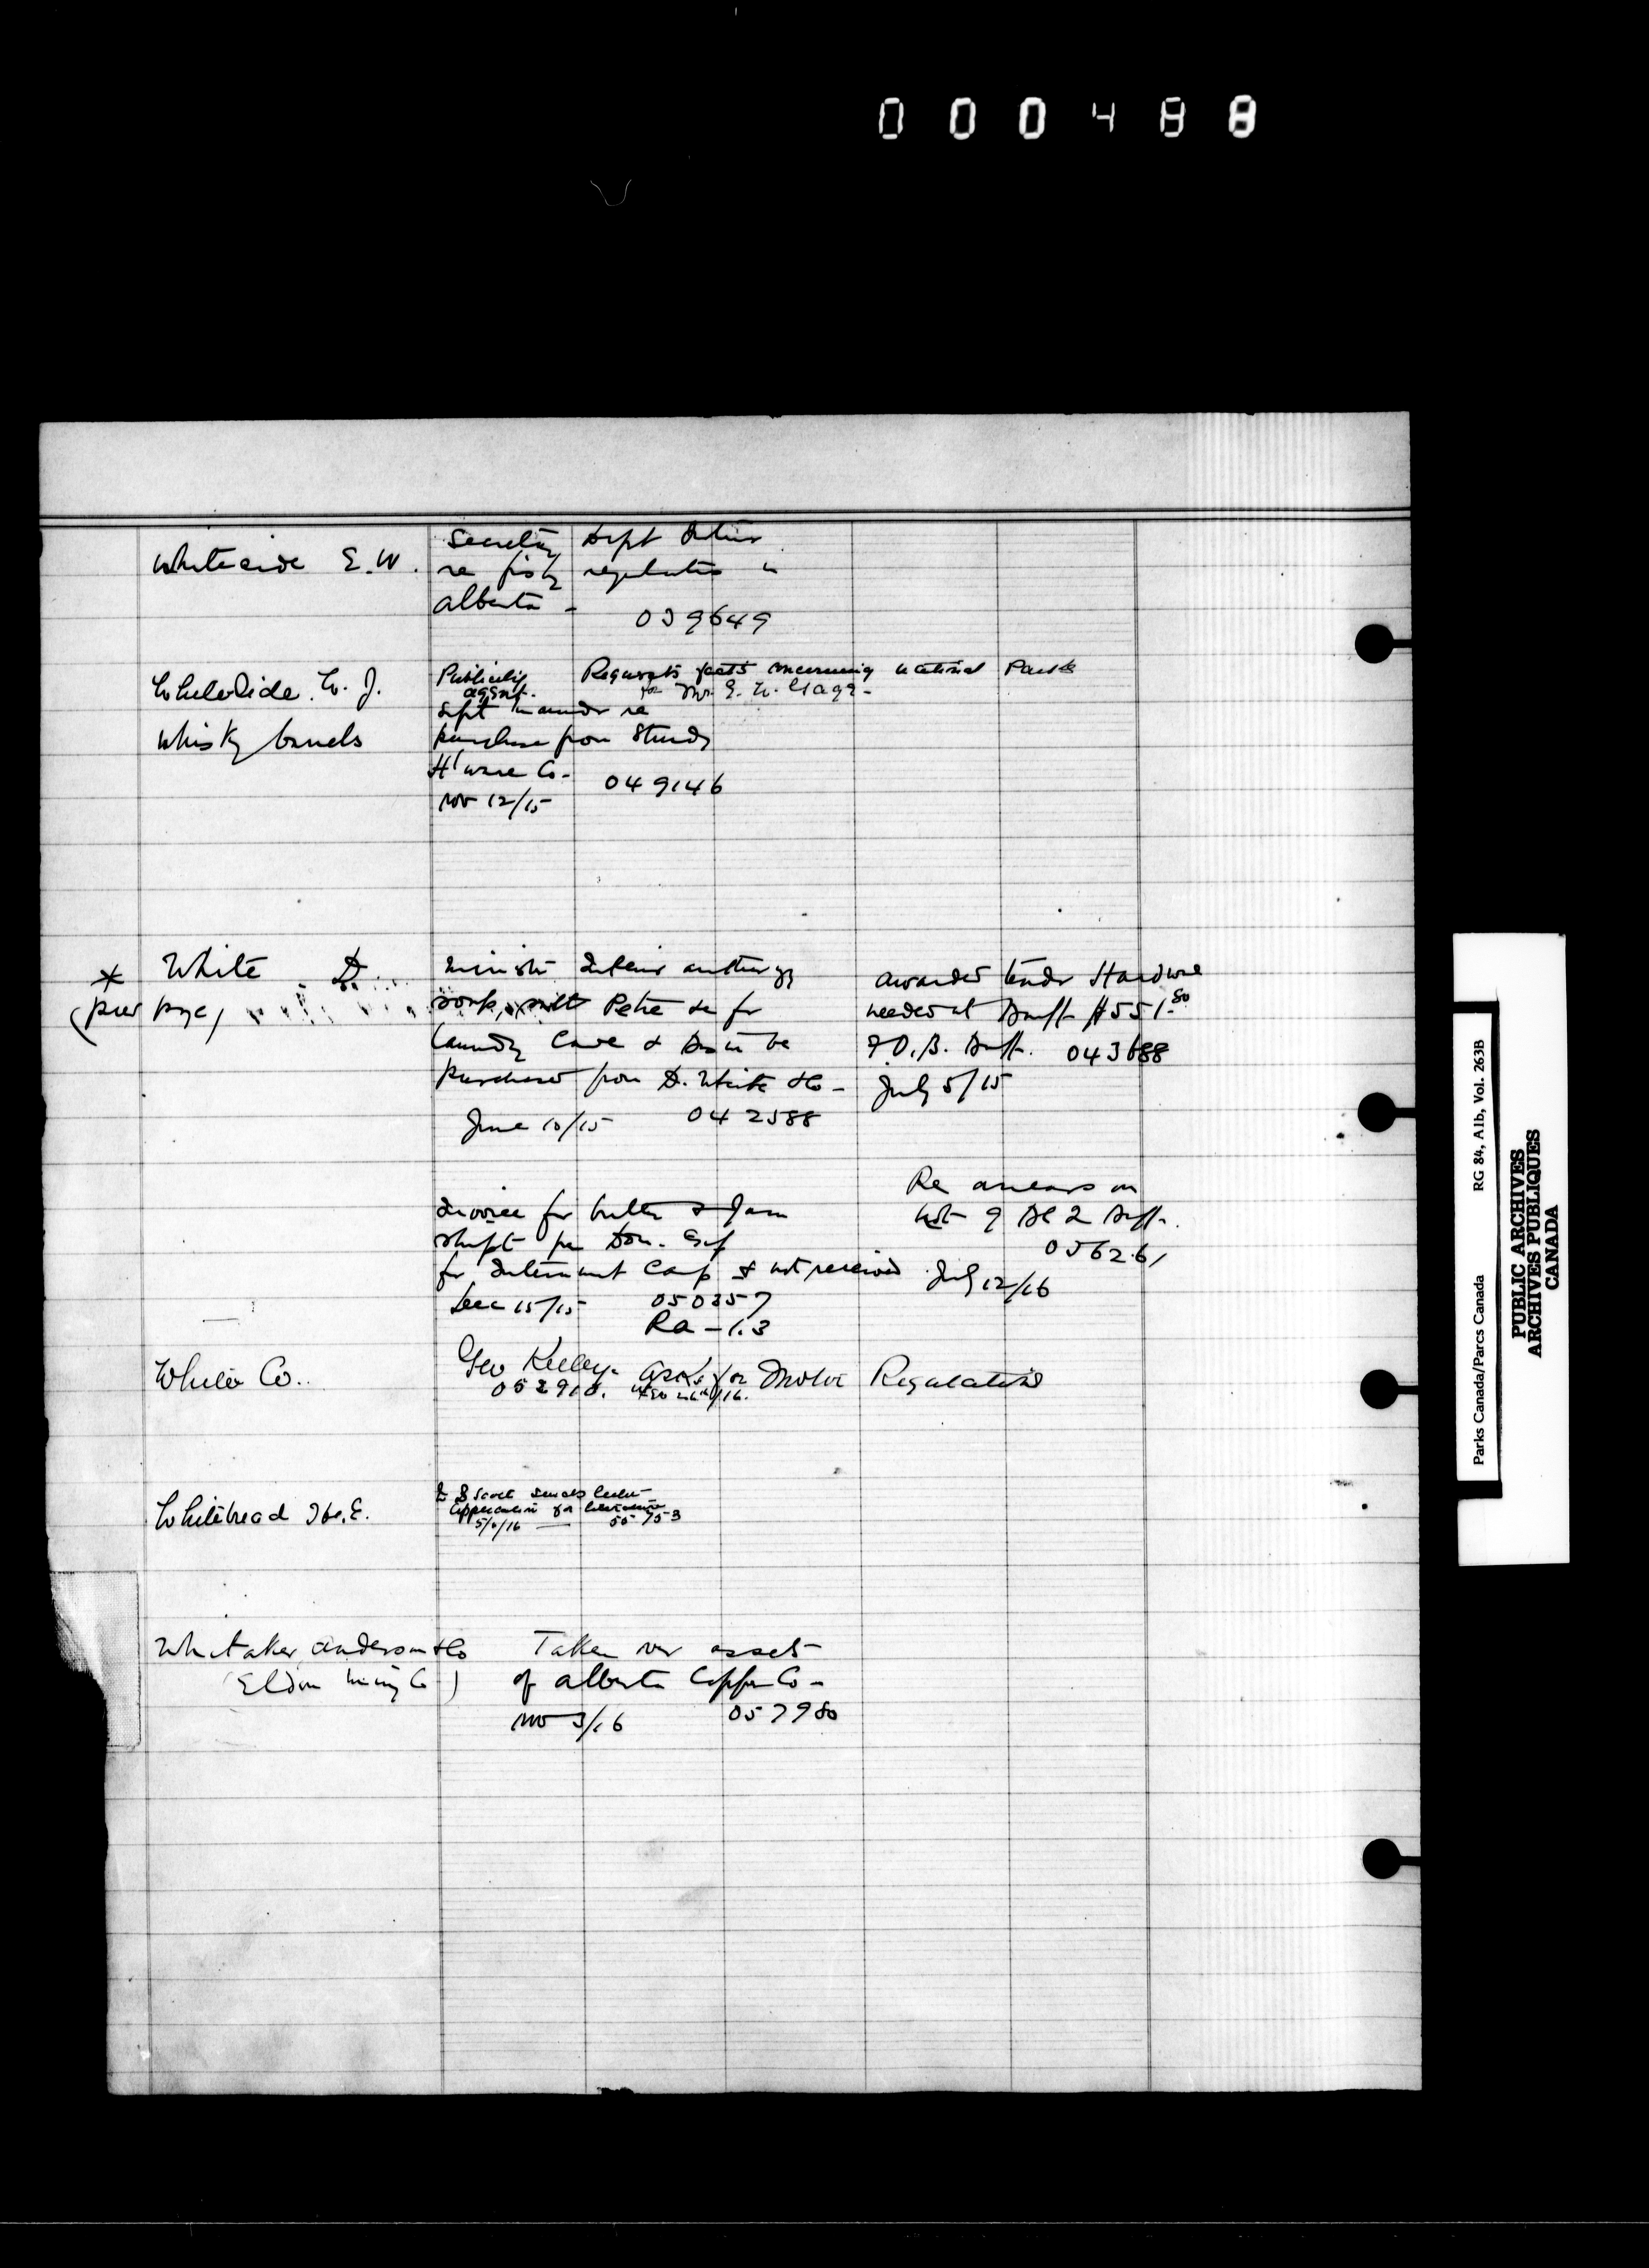 000488
Whiteside E.W.
Secretary Dept Interior
re fishing regulations in
Alberta -
039649
Whiteside. W. J.
Publicity agent.
Requests facts concerning National Parks
for Mr E. W. Gage -
Whisky barrels
Supt memo re
purchase from Sturdy
H'ware Co -
Nov 12/15
049146
* White D.
(prev page)
Minister Interior authority
soap, Petre for
laundry Cave & Basin be
purchased from D. White & Co -
June 10/15
042588
awarded tender Hardware
needed at Banff $551.80
F.O.B. Banff. 043688
July 5/15
Invoice for butter & Jam
shipt per Dom. Exp
for Internment Camp & not received
Dec 15/15
050357
Ra - 1.3
Re arrears on
Lot 9 Bl 2 Banff.
056261
July 12/16
White Co..
Geo Kelley. asks for Motor Regulations
052910.
Whitebread E.
Scott sends
Application for
5/6/16 — 55753
Whitaker Anderson & Co
(Eldon Mining Co)
Taken over assets
of Alberta Copper Co -
Nov 3/16
057980
Parks Canada/Parcs Canada RG 84, Alb, Vol. 263B
PUBLIC ARCHIVES
ARCHIVES PUBLIQUES
CANADA